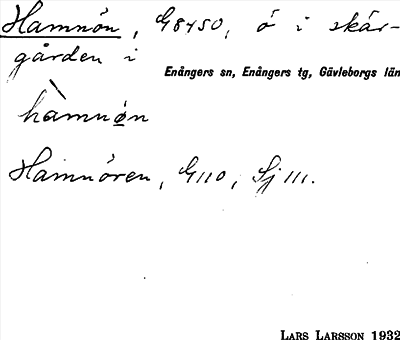 Hamnön, G8450, ö i skär-
gården i
Enångers sn, Enångers tg, Gävleborgs län
hàmnøn
Hamnören, G110, Sj 111.
LARS LARSSON 1932